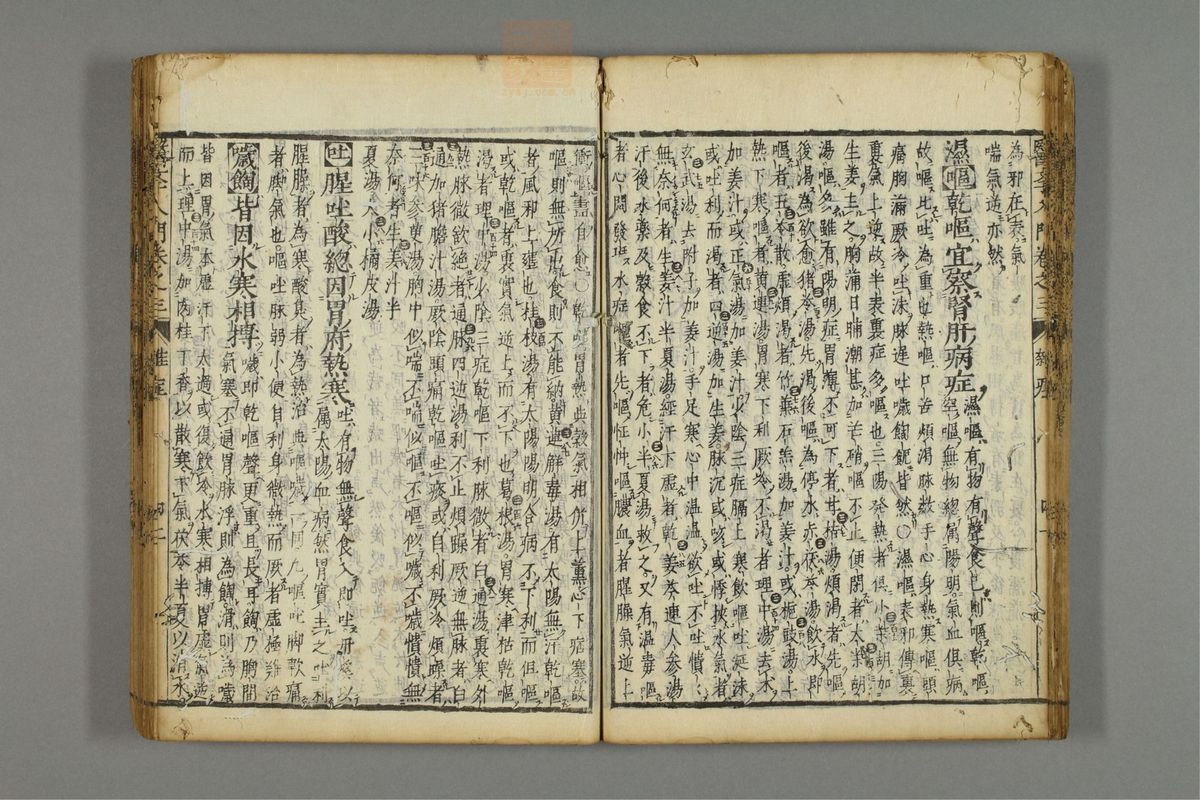 為邪在表氣
喘氣逆亦然
濕嘔乾嘔宜察腎肝病症
濕嘔有物有聲食已則嘔乾嘔
空嘔無物總屬陽明氣血俱病
故嘔比吐為重也熱嘔口苦煩渴脉數手心身熱寒嘔頭
痛胸滿厥冷吐沫脉遲吐噦餶飿皆然○濕嘔表邪傳裏
裏氣上逆故半表裏症多嘔也三陽發熱者俱小柴胡加
生姜主之胸滿日晡潮甚加芒硝嘔不止便閉者太柴胡
湯嘔多雖有陽明症胃
後渴為欲愈猪苓湯先渴後嘔為停水赤茯苓湯飲水即
嘔者五苓散虛煩渴者竹葉石羔湯加姜汁或梔豉湯上
熱下寒嘔者黄連湯胃寒下利厥冷不渴者理中湯去术
加姜汁或正氣湯加姜汁少陰三症膈上寒飲嘔吐涎沫
或吐利而渴者四逆湯加生姜脉沉或咳或悸挾水氣者
玄武湯去附子加姜汁手足寒心中溫溫欲吐不吐憒憒
無奈何者生姜汁半夏湯經汗下虛者乾姜芩連人參湯
汗後水藥及穀食不下者危小半夏湯救之又有溫毒嘔
者心悶發班水症嘔者先嘔
嘔膿血者腥臊氣逆上
嘔則無所出食則不能納黄連解毒湯有太陽無汗乾嘔
者風邪上壅也桂枝湯有太陽陽明合病不下利而但嘔
或乾嘔者裏實氣逆上而不下也葛根湯胃寒津枯乾嘔
渴者理中湯少陰三症乾嘔下利脉微者白通湯裏寒外
熱脉微欲絕者通脉四逆湯利不止煩躁厥逆無脉者白
通加猪膽汁湯厥陰頭痛乾嘔吐痰或自利厥冷煩躁者
三味參萸湯胸中似喘不喘似嘔不嘔似噦不噦憒憒無
奈何者生姜汁半
夏湯大小橘皮湯
吐腥吐酸總因胃府熱寒
吐有物無聲食入即吐
屬太陽血病然胃實主之吐利
腥臊者為寒酸臭者為熱治與嘔噦一同凡嘔吐脚軟痛
者脚氣也嘔吐脉弱小便自利身微熱而厥者虛極難治
噦餶皆因水寒相搏
噦即乾嘔聲更重且長耳餶乃胸間
氣寒不通胃脉浮則為餶滑則為噦
皆因胃氣本虛汗下太過或復飲冷水寒相搏胃虛氣逆
而上理中湯加肉桂丁香以散寒下氣茯苓半夏以消水